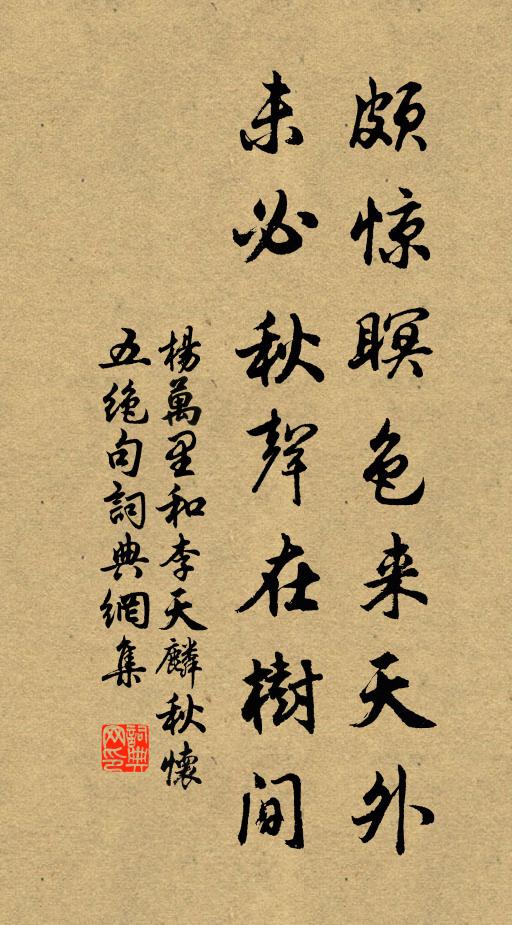 颇惊瞑色来天外
未必秋聲在樹间
楊萬里和李天麟秋懷
五绝句詞典網集
詞典网印